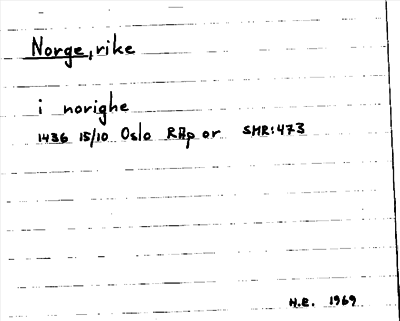 Norge, rike
i norighe
1436 15/10 Oslo RAp or SMR:473
H.E. 1969